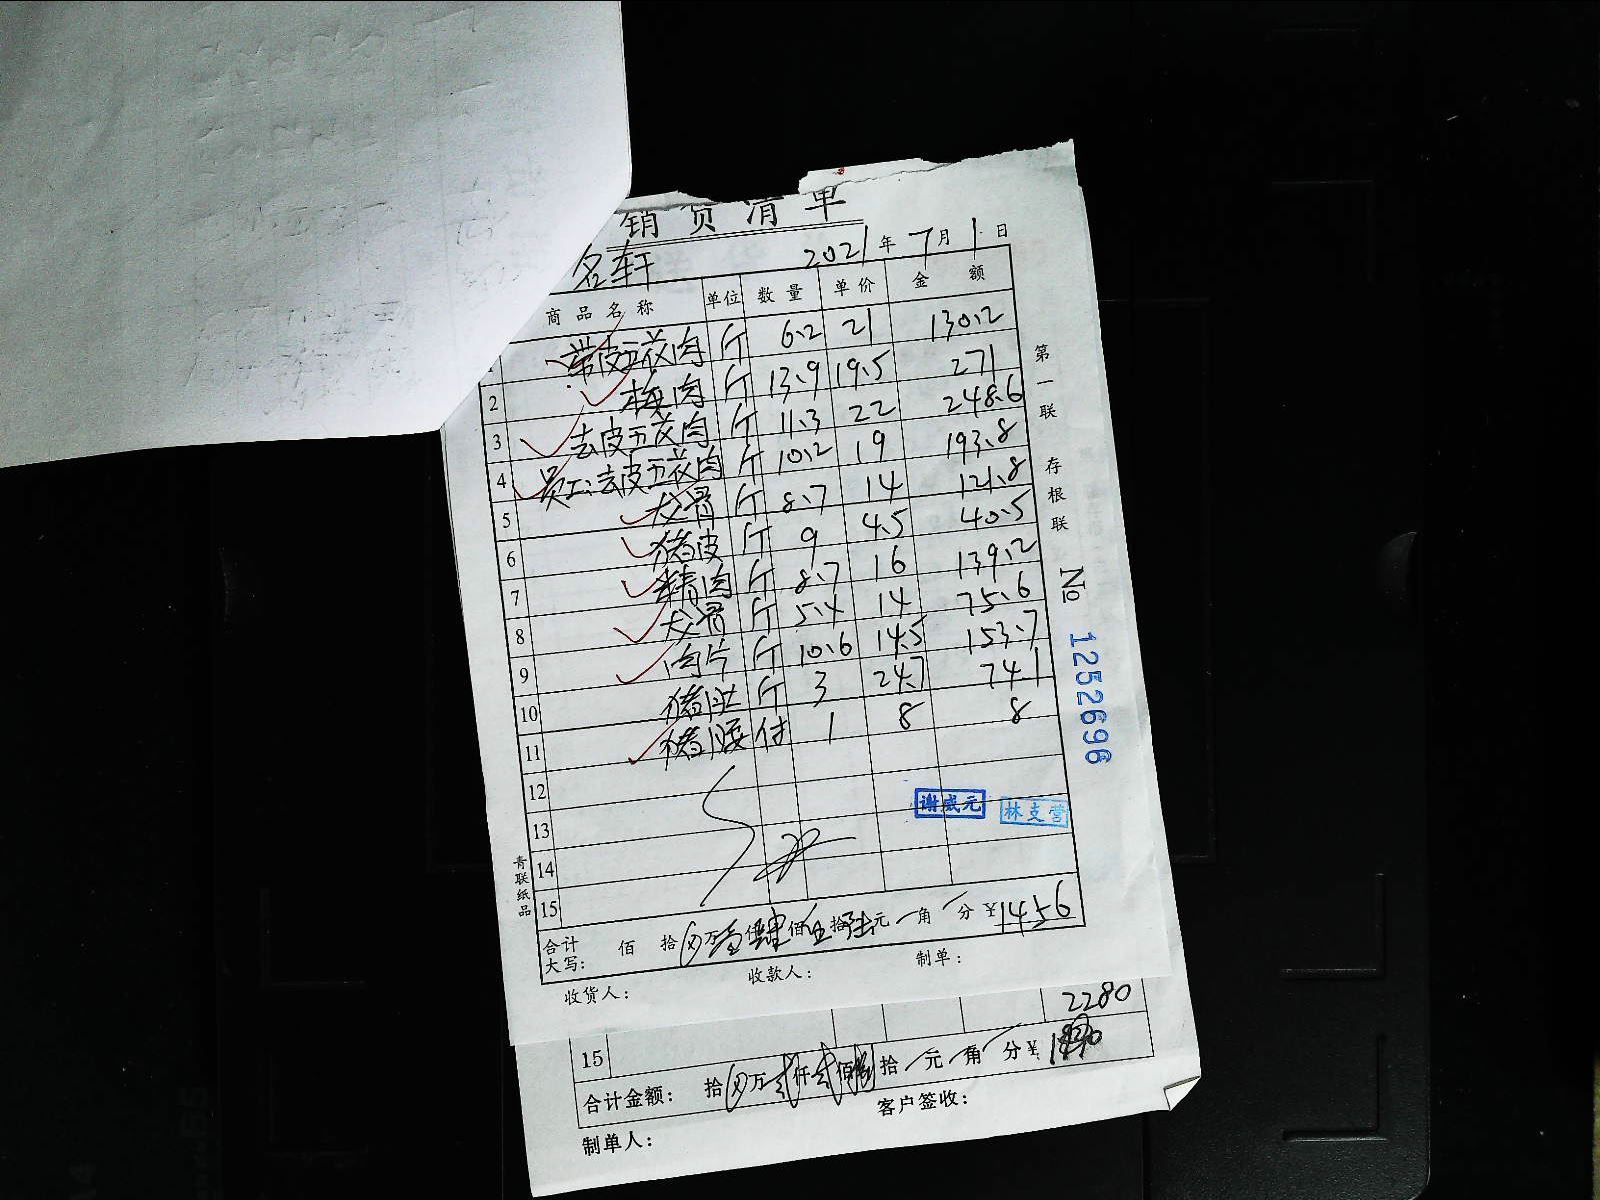 销货清单
名轩 2021年7月1日
商品名称 单位 数量 单价 金额
带皮五花肉 斤 6.2 21 130.2
2 梅肉 斤 13.9 19.5 271
3 去皮五花肉 斤 11.3 22 248.6
4 员工:去皮五花肉 斤 10.2 19 193.8
5 龙骨 斤 8.7 14 121.8
6 猪皮 斤 9 4.5 40.5
7 精肉 斤 8.7 16 139.2
8 龙骨 斤 5.4 14 75.6
9 肉片 斤 10.6 14.5 153.7
10 猪肚 斤 3 24.7 74.1
11 猪腰 付 1 8 8
12
13
14
15
谢威元 林支营
合计大写: 佰 拾 万壹仟肆佰伍拾陆元 角 分 ¥1456
收货人: 收款人: 制单:
第一联 存根联 № 1252696
青联纸品
2280
15
合计金额: 拾 万贰仟贰佰 拾 元 角 分 ¥
客户签收:
制单人: